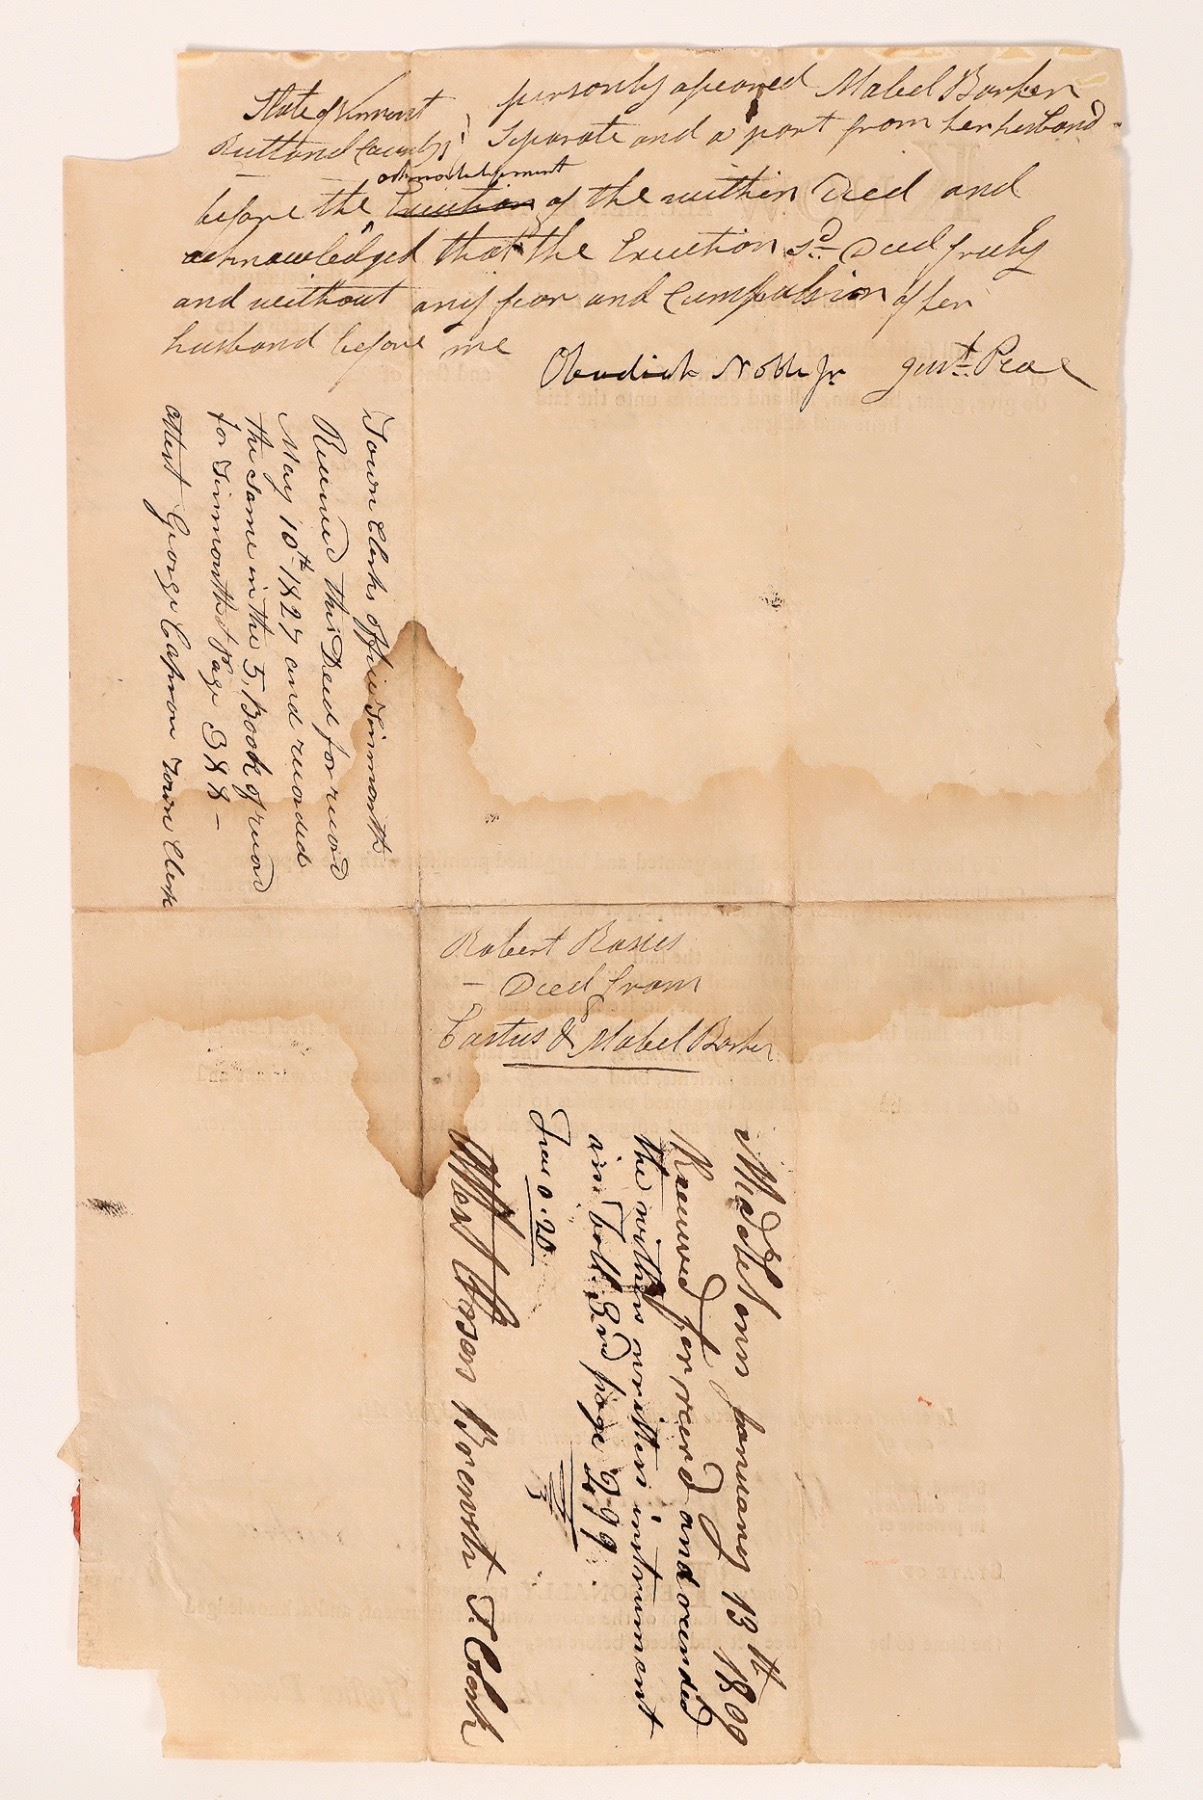 State of Vermont } personly apeared Mabel Barker
Rutland County ss } Separate and a part from her husband
acknowledgement
before the Execution of the within Deed and
acknowledged that the Execution sd Deed freely
and without any fear and Cumpulsion of her
husband before me
Obadiah Noble Jr Just. Peac
Town Clerks office Tinmouth
Received this Deed for record
May 10th 1827 and recorded
the same in the 5, Book of record
for Tinmouth Page 388 –
attest George Capron Town Clerk
Robert Rosies
– Deed from
Eastus & Mabel Barker
Middletown January 13th 1809
Received for record and recorded
the within written instrument
in Book 3rd page 299
Fees 0.20
Attest Anson Bosworth T. Clerk